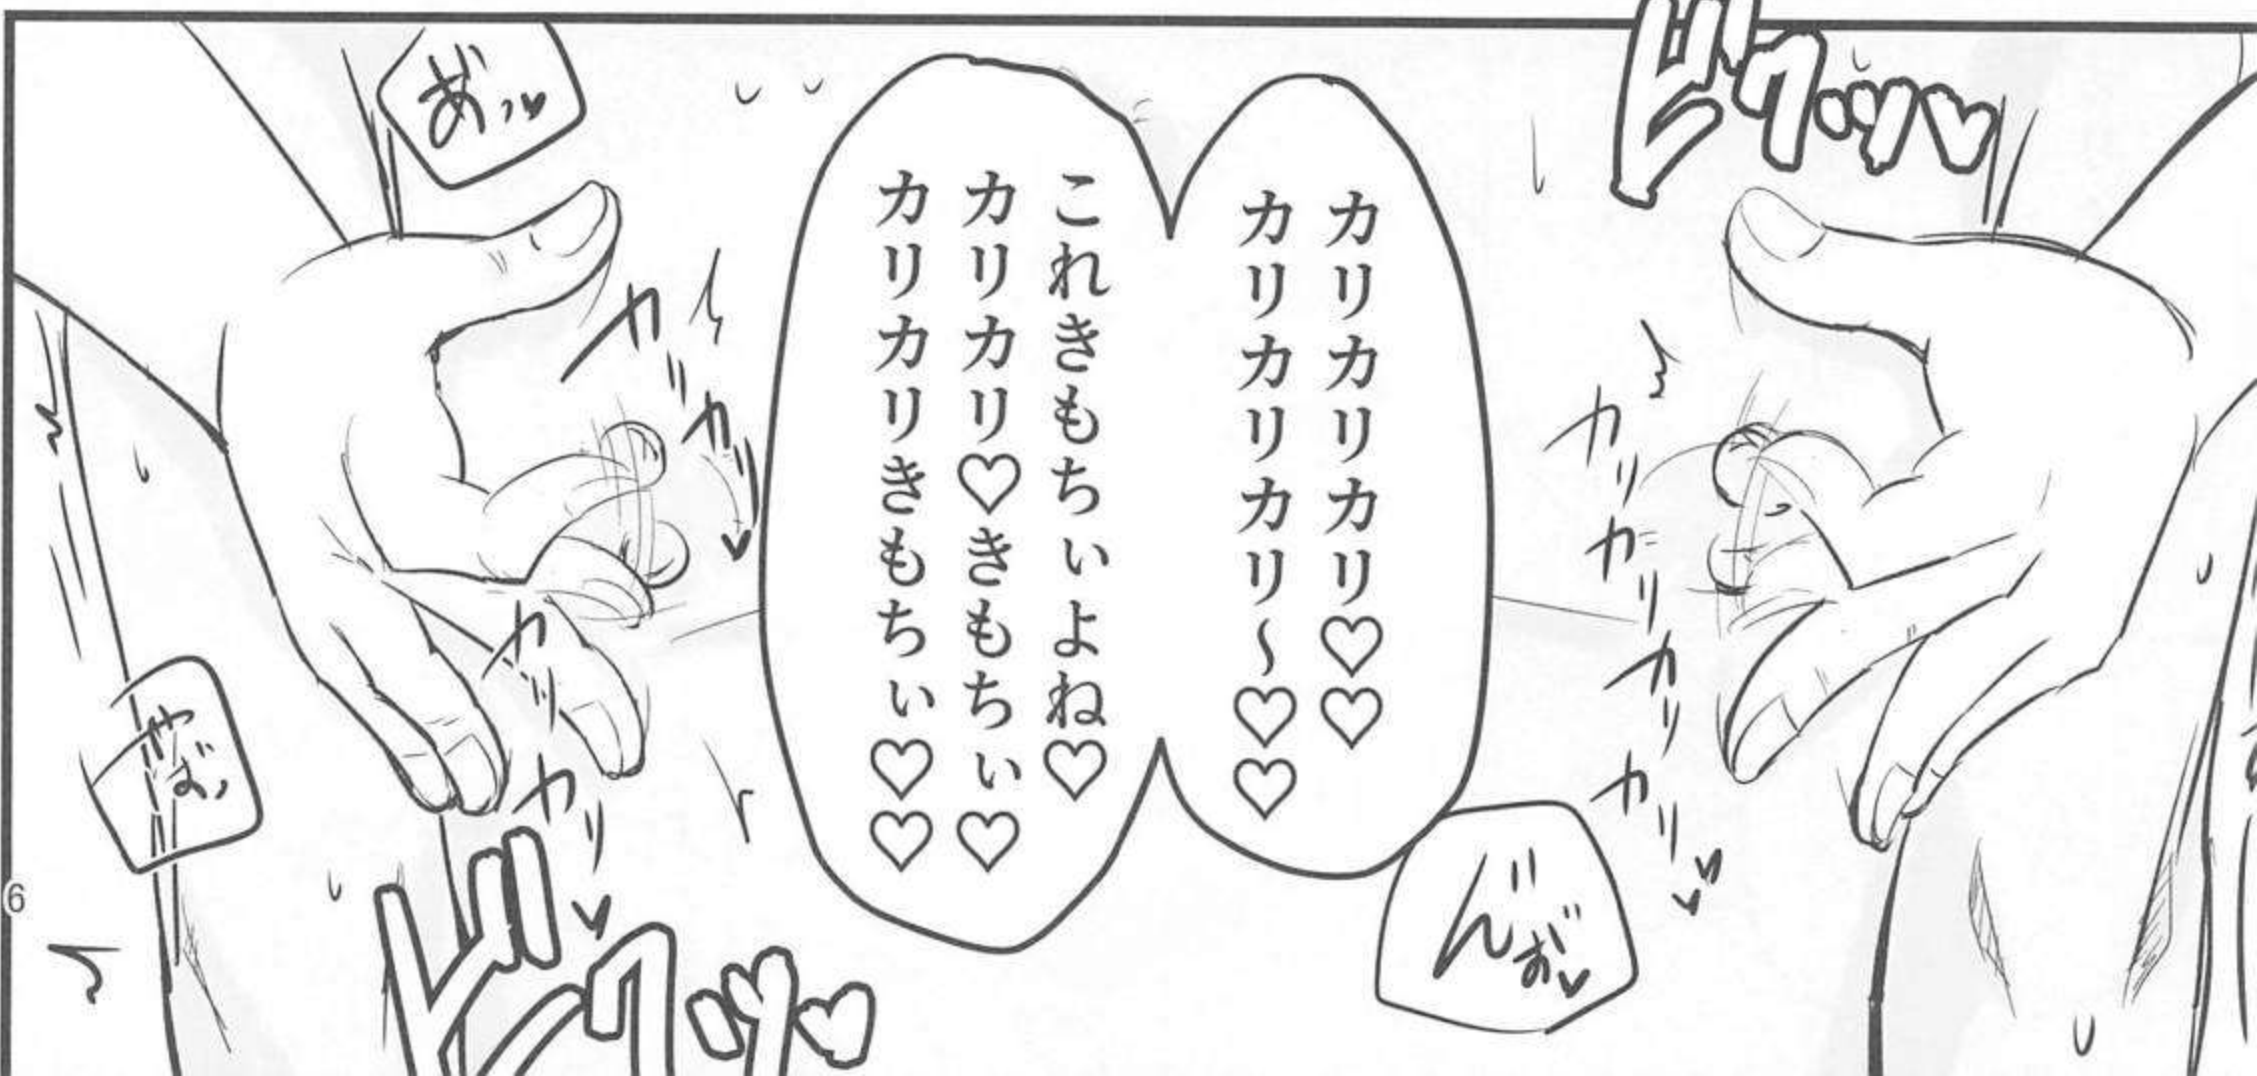 ビクッ♥
カリカリカリ♡♡
カリカリカリ～♡♡
これきもちぃよね♡
カリカリ♡きもちぃ♡
カリカリきもちぃ♡♡
あっ♥
カリカリカリカリ♥♥
カリカリ♥
カリカリ♥
んお゛♥
やば、
ビクッ♥
6